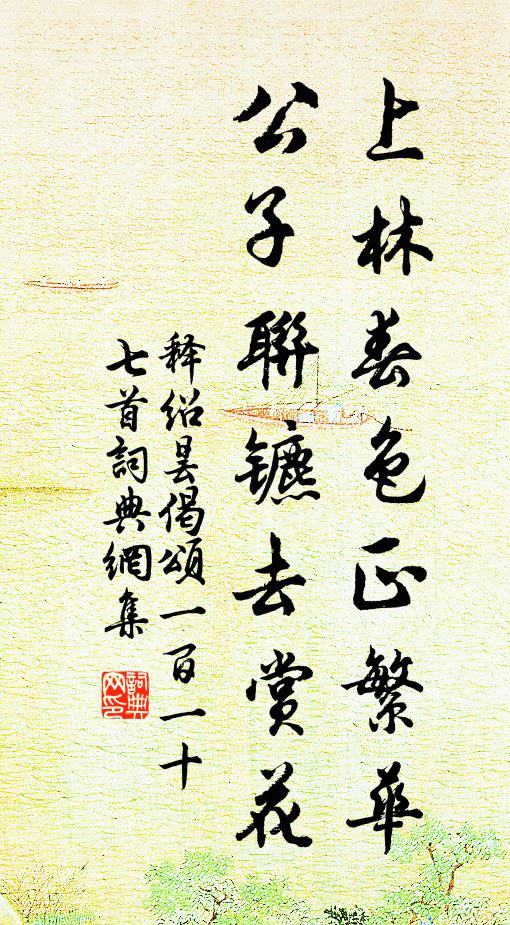 上林春色正繁華
公子聯鑣去賞花
释绍昙偈颂一百一十
七首詞典網集
詞典网印